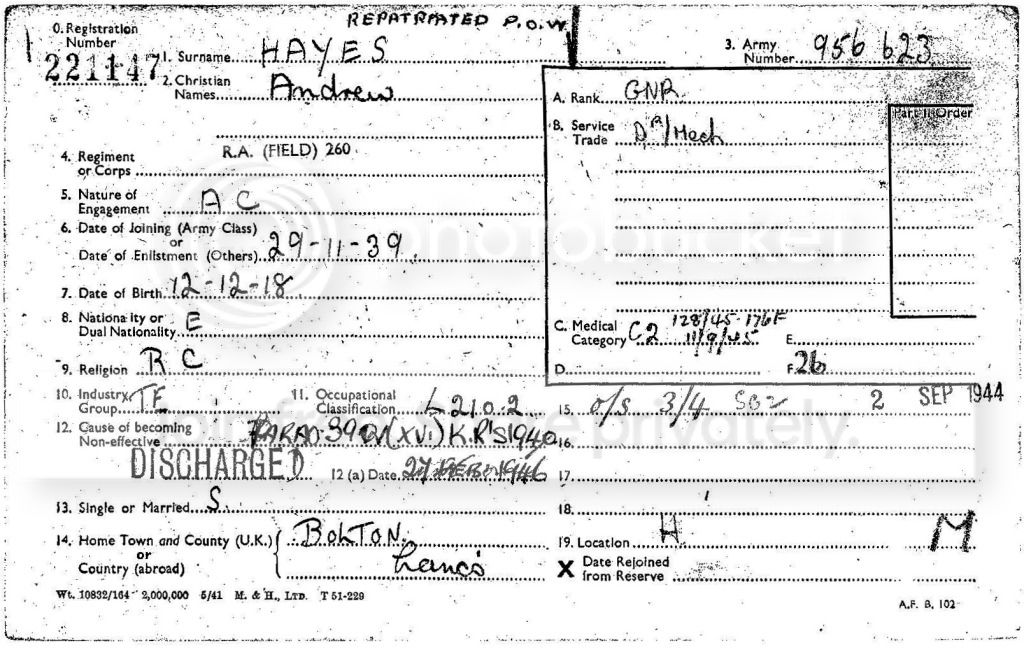 REPATRIATED P.O.W.
0. Registration Number
221147
1. Surname HAYES
3. Army Number 956 623
2. Christian Names Andrew
A. Rank GNR
Part II Order
B. Service Trade DR/Mech
4. Regiment or Corps R.A. (FIELD) 260
5. Nature of Engagement A C
6. Date of Joining (Army Class)
or
Date of Enlistment (Others) 29-11-39
7. Date of Birth 12-12-18
8. Nationality or Dual Nationality E
C. Medical Category C2 11/9/45
128/45
E.
9. Religion R C
D.
F. 26
10. Industry Group TE
11. Occupational Classification L 210.2
15. O/S 3/4 2 SEP 1944
12. Cause of becoming Non-effective PARA 390 (XVI) K.R'S 1940
16.
DISCHARGED
12 (a) Date 27 FEB 1946
17.
13. Single or Married S
18.
14. Home Town and County (U.K.) BOLTON
or
Country (abroad) Lancs
19. Location H M
X Date Rejoined from Reserve
Wt. 10832/164 2,000,000 5/41 M. & H., LTD. T 51-229
A.F. B. 102
photobucket